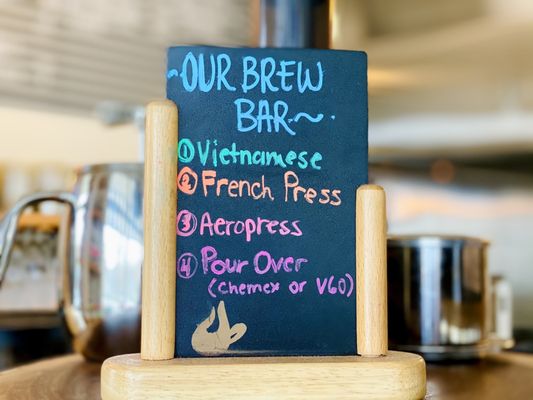 ~OUR BREW
BAR~
1 Vietnamese
2 French Press
3 Aeropress
4 Pour Over
(Chemex or V60)